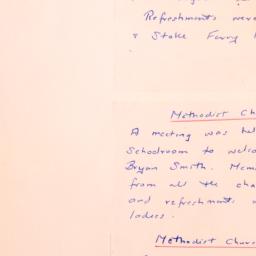 Refreshments were
& Stoke Ferry
Methodist Ch
A meeting was hel
Schoolroom to welco
Bryan Smith. Mem
from all the cha
and refreshments
ladies.
Methodist Churc